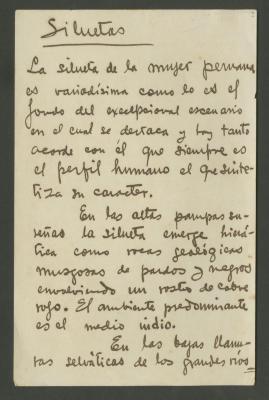 Siluetas
La silueta de la mujer peruana
es variadísima como lo es el
fondo del excepcional escenario
en el cual se destaca y hay tanto
acorde con él que siempre es
el perfil humano el que sinte-
tiza su caracter.
En las altas pampas su-
reñas la silueta emerge hierá-
tica como rocas geológicas
musgosas de pardos y negros
envolviendo un rostro de cobre
rojo. El ambiente predominante
es el medio indio.
En las bajas llanu-
ras selváticas de los grandes ríos